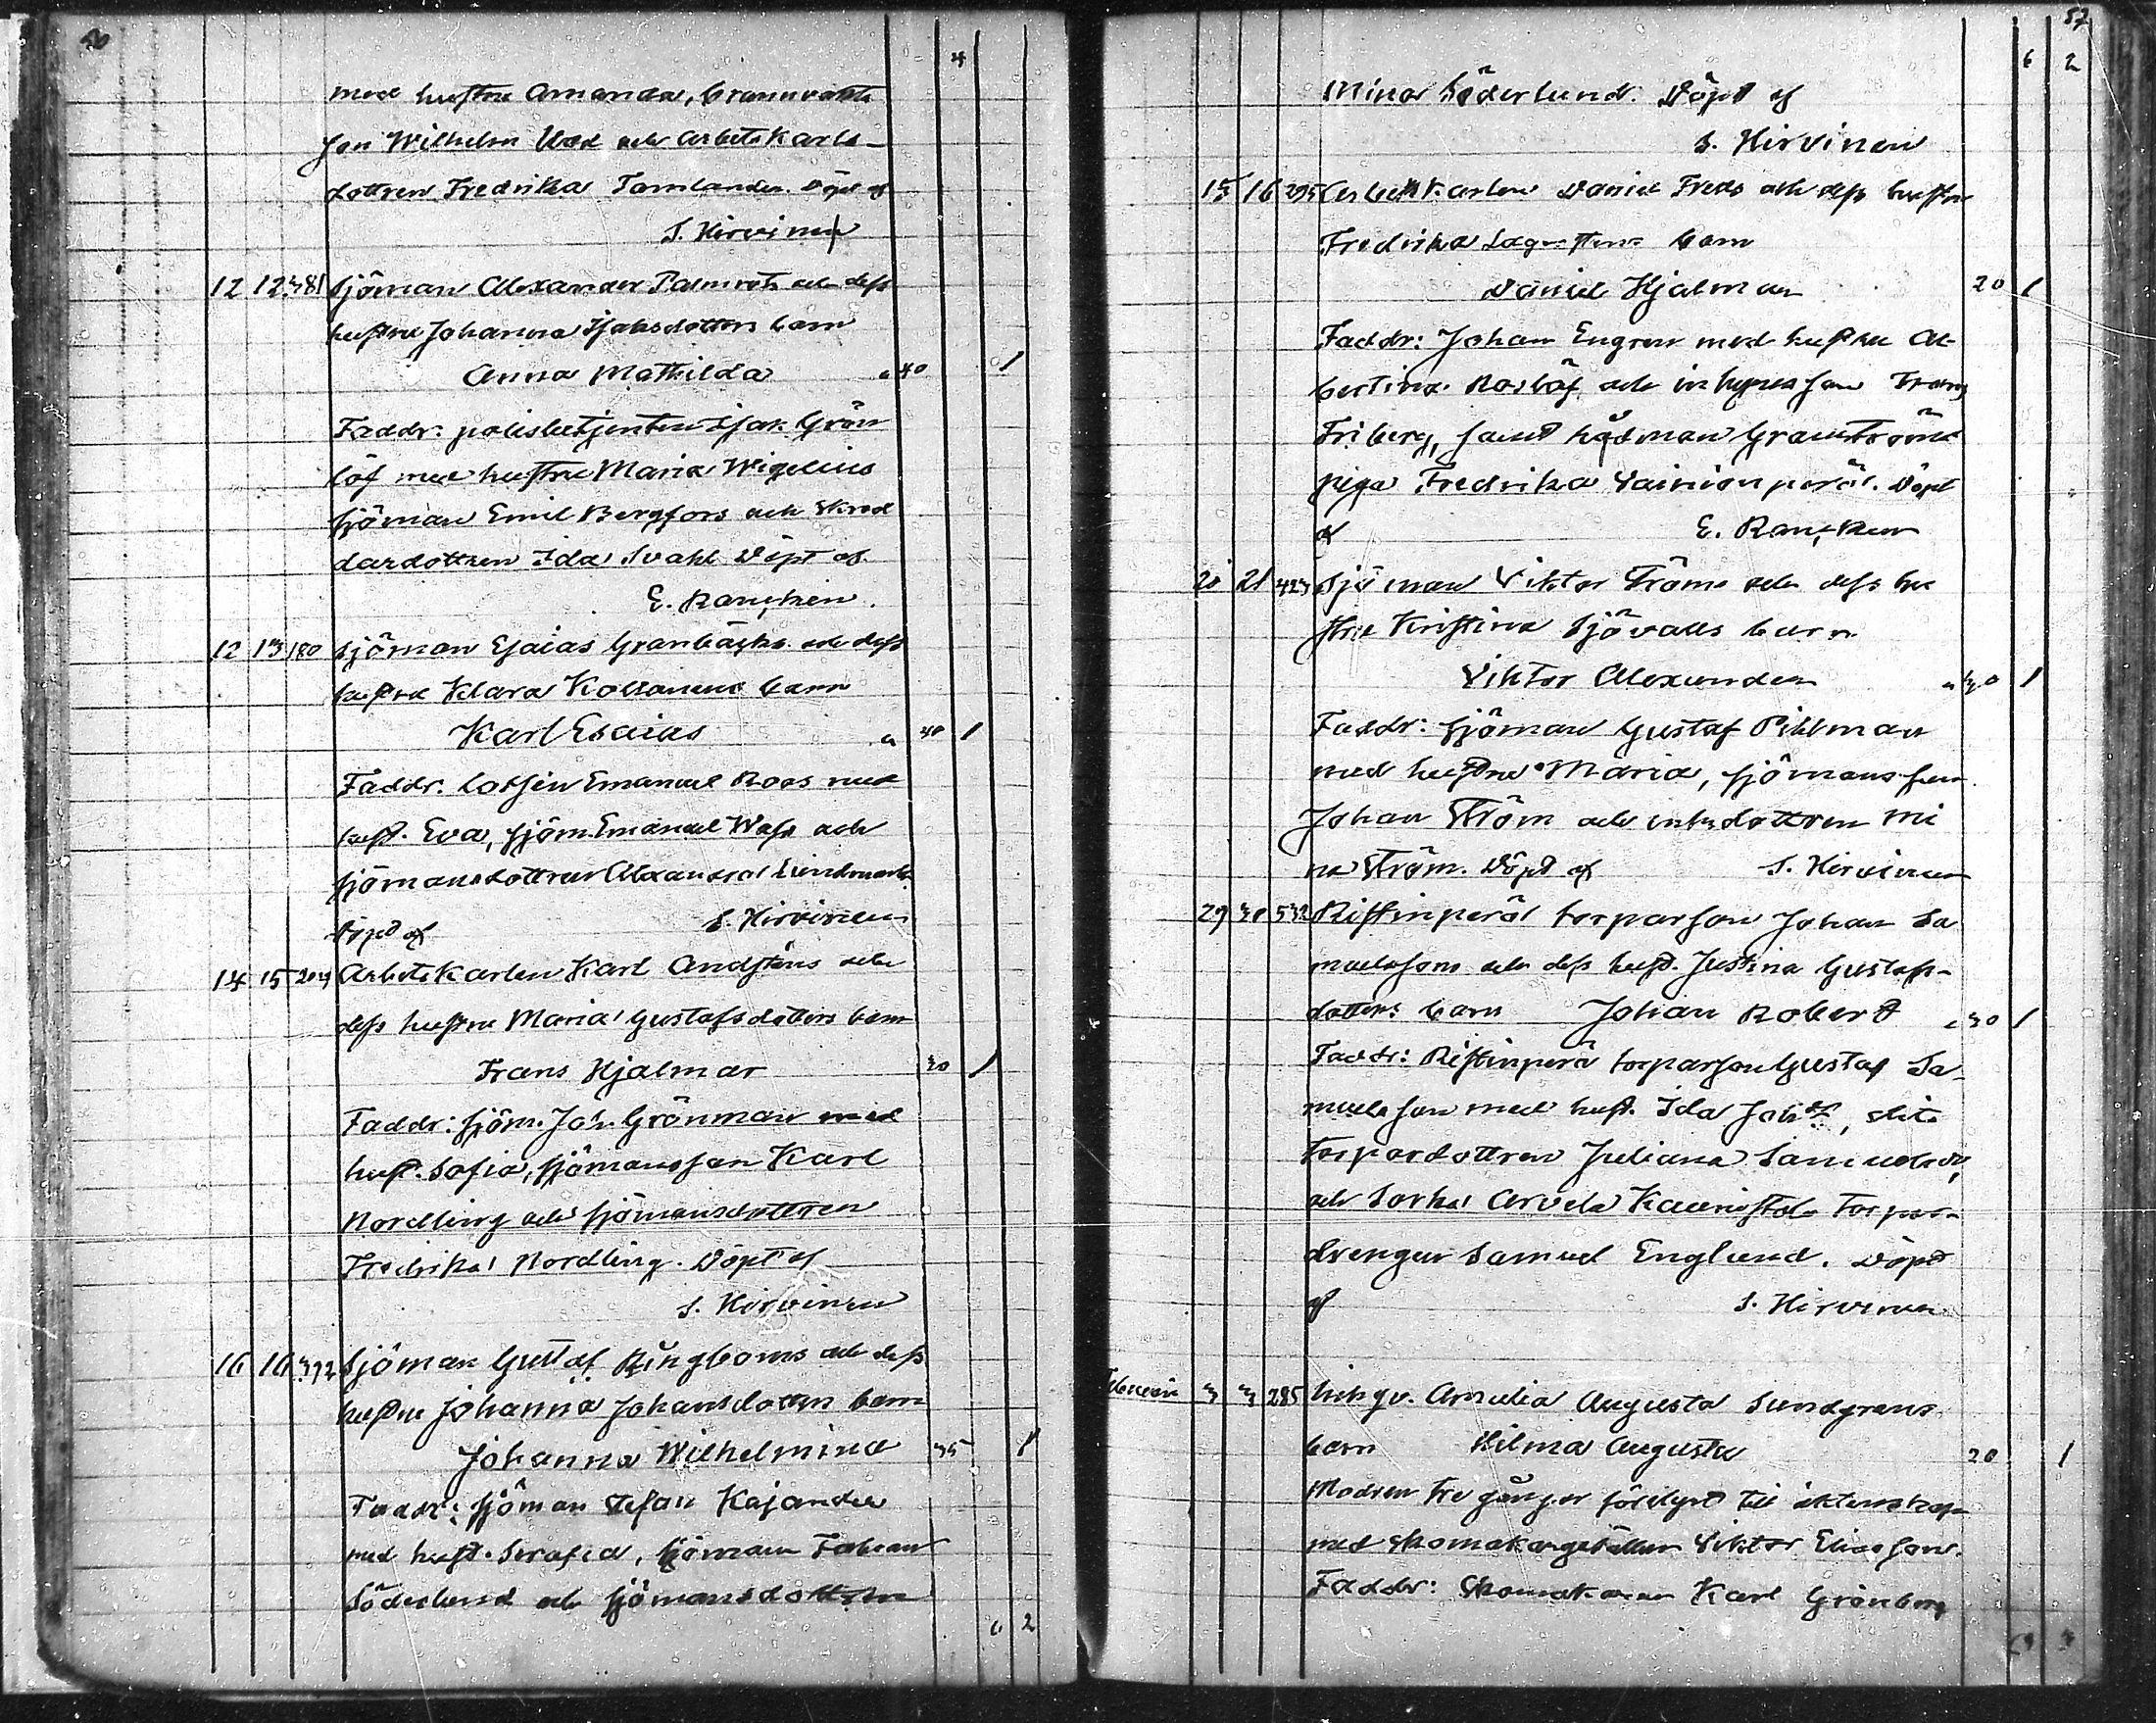 4
med hustru Amanda, brannvakts
son Wilhelm Wed och arbetskarls-
dottren Fredrika Tamlander. Döpt af
S. Hirvinen
12 12 381 Sjöman Alexander Palmroth och dess
hustru Johanna Isaksdotters barn
Anna Mathilda " 40 1
Faddr: polisbetjenten Isak Grön
löf med hustru Maria Wigelius
sjöman Emil Bergfors och skräd
dardottren Ida Svahl Döpt af
E. Rancken.
12 13 180 Sjöman Esaias Granbacka och dess
hustru Klara Kollanens barn
Karl Esaias " 40 1
Faddr. lotsen Emanuel Roos med
hust. Eva, sjöm. Emanuel Wass och
sjömansdottren Alexandra Lindmark
Döpt af S. Hirvinen
14 15 Arbetskarlen Karl Andsténs och
dess hustru Maria Gustafsdotters barn
Frans Hjalmar 30 1
Faddr: sjöm. Joh. Grönman med
hust. Sofia, sjömansson Karl
Nordling och sjömansdottren
Fredrika Nordling. Döpt af
S. Hirvinen
16 16 392 Sjöman Gustaf Ringboms och dess
hustru Johanna Johansdotters barn
Johanna Wilhelmina 35 1
Faddr: sjöman Stefan Kajander
med hust. Serafia, sjöman Fabian
Söderlund och sjömansdottren
6 2
57
6 2
Mina Söderlund. Döpt af
S. Hirvinen
15 16 295 Arbetskarlen Daniel Freds och dess hustru
Fredrika Lagerstens barn
Daniel Hjalmar 20 1
Faddr: Johan Engren med hustru Al-
bertina Roslöf och inhyses son Frans
Friberg, samt rådman Granströms
piga Fredrika Vainionperä. Döpt
af E. Rancken
20 21 423 Sjöman Viktor Ströms och dess hu
stru Kristina Sjövalls barn
Viktor Alexander " 40 1
Faddr: sjöman Gustaf Pihlman
med hustru Maria, sjömansson
Johan Ström och inh. dottren Mi
na Ström. Döpt af S. Hirvinen
29 30 532 Ristinperä torparson Johan Sa
muelsons och dess hust. Justina Gustafs-
dotters barn Johan Robert " 30 1
Faddr: Ristinperä torparson Gustaf Sa-
muelsson med hust. Ida Joh. dr, dito
torpardottren Juliana Samuelsdr,
och Sorka Arvela Kaunisto torpar-
drengen Samuel Englund. Döpt
af S. Hirvinen
Februari 3 3 285 Inh. qv. Amalia Augusta Sundgrens
barn Hilma Augusta 20 1
Modren tre gånger förelyst till äktenskap
med skomakargesällen Viktor Eliasson.
Faddr: Skomakaren Karl Grönberg